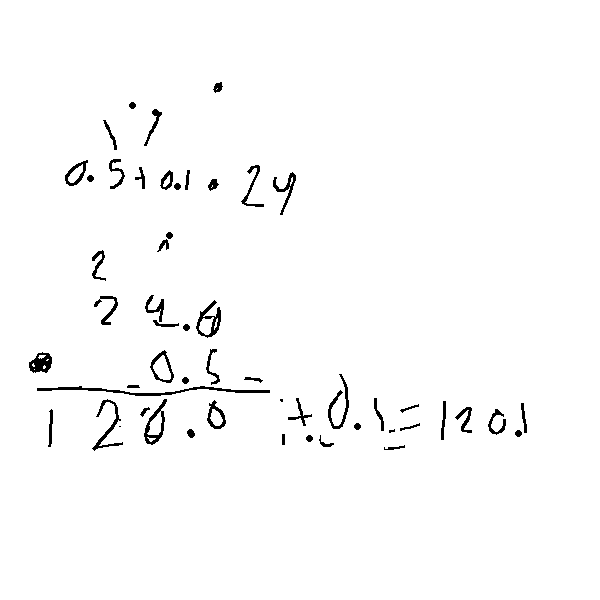 0.5+0.1•24
2
24.0
• 0.5
120.0 + 0.1 = 120.1